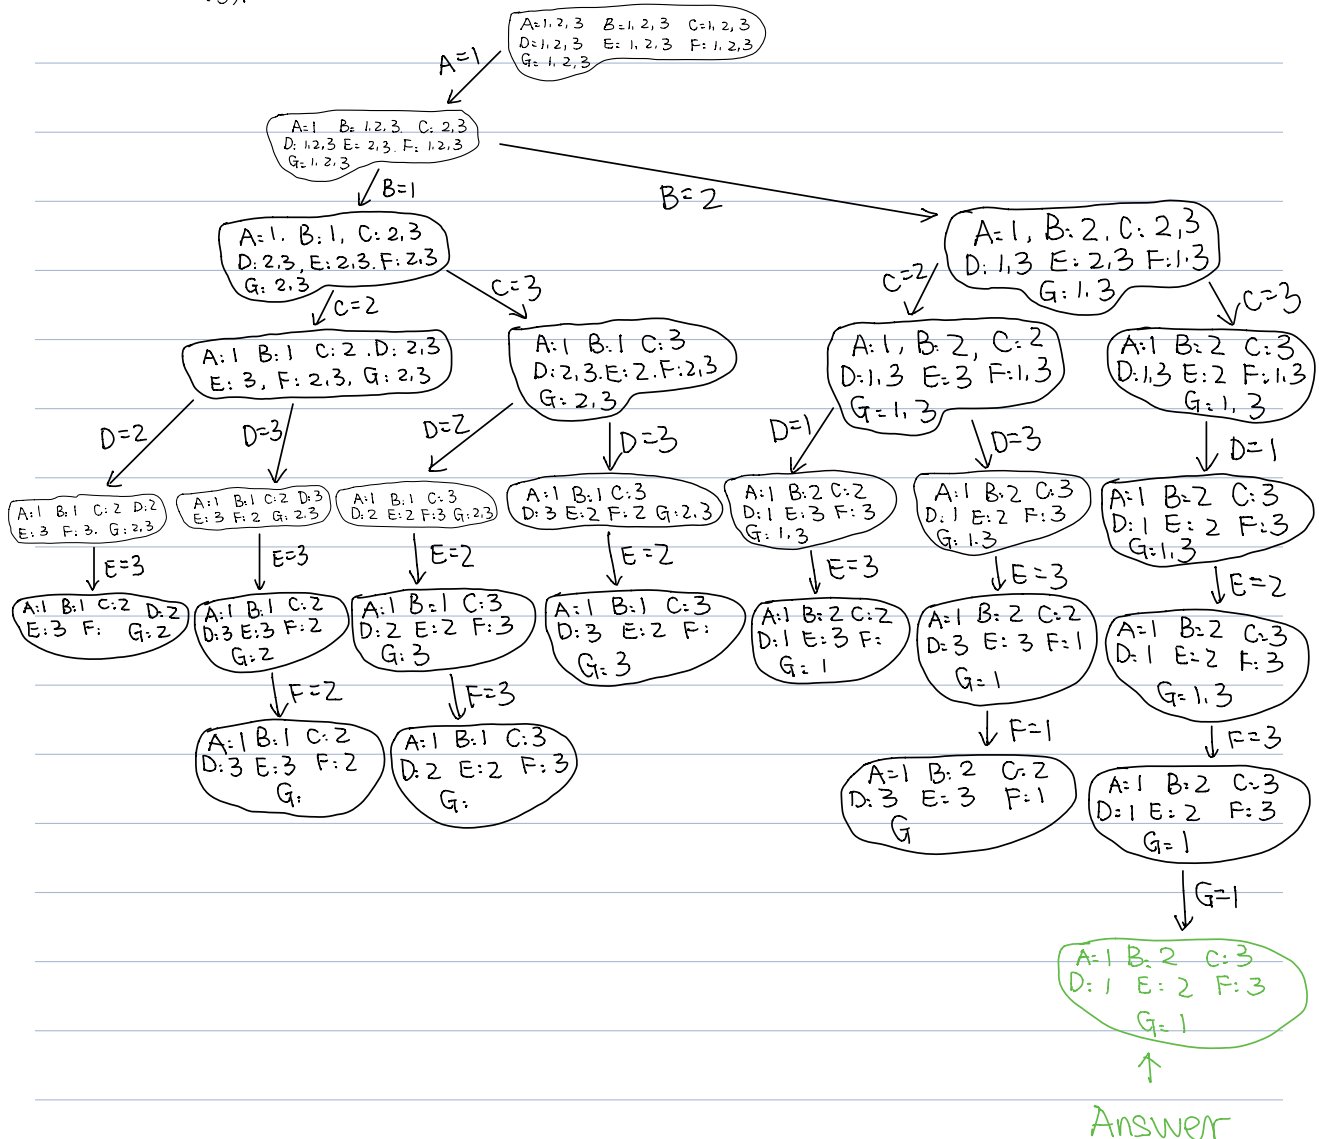 A=1, 2, 3 B=1, 2, 3 C=1, 2, 3
D=1, 2, 3 E: 1, 2, 3 F: 1, 2, 3
G= 1, 2, 3
A=1
A=1 B= 1, 2, 3. C: 2, 3
D: 1, 2, 3 E= 2, 3. F: 1, 2, 3
G= 1, 2, 3
B=1
B=2
A=1. B: 1, C: 2,3
D: 2,3, E: 2,3. F: 2,3
G: 2,3
A=1, B: 2, C: 2,3
D: 1,3 E: 2,3 F: 1,3
G: 1, 3
C=2
C=3
C=2
C=3
A:1 B:1 C:2. D: 2,3
E: 3, F: 2,3, G: 2,3
A:1 B:1 C:3
D: 2,3. E: 2. F: 2,3
G: 2,3
A: 1, B: 2, C: 2
D: 1, 3 E=3 F: 1, 3
G= 1, 3
A:1 B: 2 C: 3
D: 1,3 E: 2 F: 1,3
G: 1, 3
D=2
D=3
D=2
D=3
D=1
D=3
D=1
A: 1 B: 1 C: 2 D: 2
E: 3 F: 3. G: 2,3
A:1 B:1 C:2 D:3
E: 3 F: 2 G: 2,3
A:1 B:1 C:3
D:2 E:2 F:3 G:2,3
A:1 B:1 C:3
D: 3 E:2 F:2 G:2,3
A:1 B:2 C:2
D:1 E:3 F:3
G: 1,3
A:1 B:2 C:3
D:1 E:2 F:3
G: 1,3
A:1 B:2 C:3
D:1 E:2 F:3
G:1,3
E=3
E=3
E=2
E=2
E=3
E=3
E=2
A:1 B:1 C:2 D:2
E: 3 F: G:2
A:1 B:1 C:2
D:3 E:3 F:2
G: 2
A:1 B:1 C:3
D:2 E:2 F:3
G: 3
A:1 B:1 C:3
D: 3 E:2 F:
G: 3
A:1 B:2 C:2
D:1 E:3 F:
G= 1
A:1 B:2 C:2
D:3 E:3 F:1
G=1
A=1 B=2 C:3
D:1 E=2 F:3
G=1,3
F=2
F=3
F=1
F=3
A:1 B:1 C:2
D:3 E:3 F:2
G:
A:1 B:1 C:3
D:2 E:2 F:3
G:
A=1 B:2 C:2
D: 3 E=3 F:1
G
A:1 B:2 C:3
D:1 E:2 F:3
G=1
G=1
A:1 B:2 C:3
D: 1 E: 2 F: 3
G=1
Answer